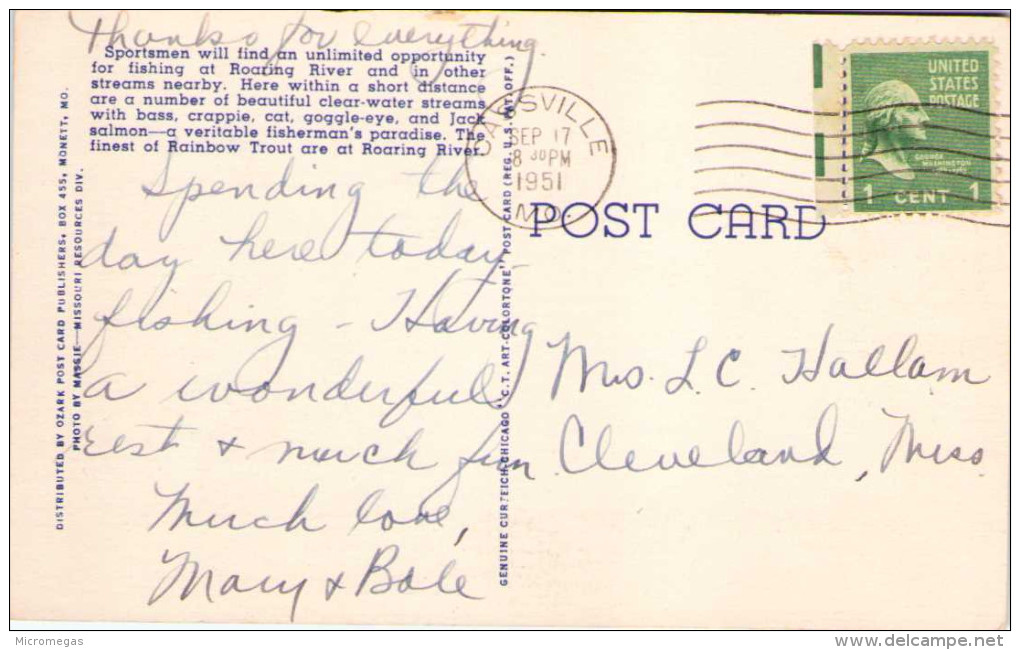 Thanks for everything.
Sportsmen will find an unlimited opportunity
for fishing at Roaring River and in other
streams nearby. Here within a short distance
are a number of beautiful clear-water streams
with bass, crappie, cat, goggle-eye, and Jack
salmon—a veritable fisherman's paradise. The
finest of Rainbow Trout are at Roaring River.
Spending the
day here today
fishing - Having
a wonderful
rest & much fun
Much love,
Mary & Bole
DISTRIBUTED BY OZARK POST CARD PUBLISHERS, BOX 455, MONETT, MO.
PHOTO BY MASSIE—MISSOURI RESOURCES DIV.
GENUINE CURTEICH-CHICAGO "C.T. ART-COLORTONE" POST CARD (REG. U.S. PAT. OFF.)
CASSVILLE
SEP 17
8 30 PM
1951
MO.
UNITED
STATES
POSTAGE
GEORGE
WASHINGTON
1 CENT 1
POST CARD
Mrs. L. C. Hallam
Cleveland, Miss.
Micromegas
delcampe.net